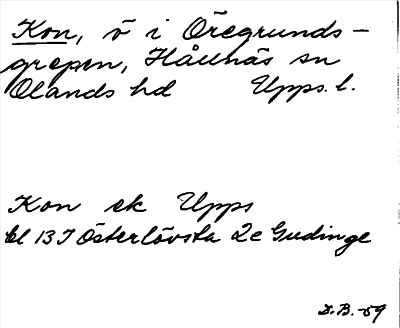 Kon, ö i Öregrunds-
grepen, Hållnäs sn
Olands hd Upps. l.
Kon ek Upps
bl 13 I Österlövsta 2e Gudinge
D.B. -59